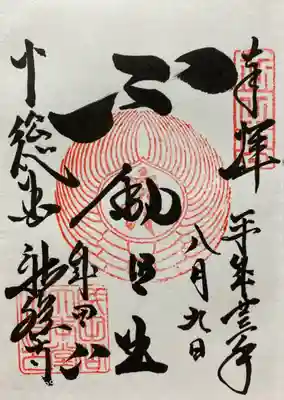 奉拝
平成廿三年
八月九日
不動明王
成田山
下總国 新勝寺